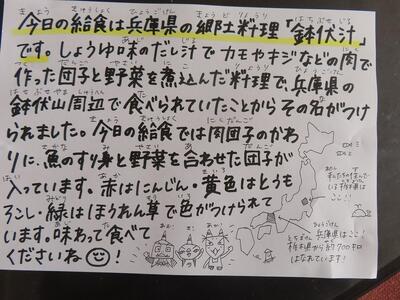 今日の給食は兵庫県の郷土料理「鉢伏汁」
です。しょうゆ味のだし汁でカモやキジなどの肉で
作った団子と野菜を煮込んだ料理で、兵庫県の
鉢伏山周辺で食べられていたことからその名がつけ
られました。今日の給食では肉団子のかわ
りに、魚のすり身と野菜を合わせた団子が
入っています。赤はにんじん・黄色はとうも
ろこし・緑はほうれん草で色がつけられて
います。味わって食べて
くださいね!
私たちの住んで
いる栃木県は
ここ!!
兵庫県はここ!
栃木県から約700キロ
はなれています!